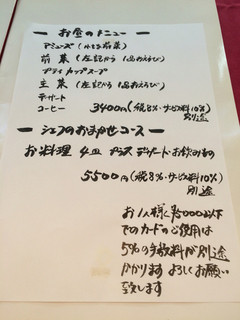 ー お昼のメニュー ー
アミューズ (小さな前菜)
前菜 (左記から 1品おえらび)
プティカップスープ
主菜 (左記から 1品おえらび)
デザート
コーヒー 3400円(税8%・サービス料10%)
別途
ー シェフのおまかせコース ー
お料理 4皿 プラス デザートお飲みもの
5500円(税8%・サービス料10%)
別途
お1人様 以下
でのカードのご使用は
5%の手数料が別途
かかります よろしくお願い
致します